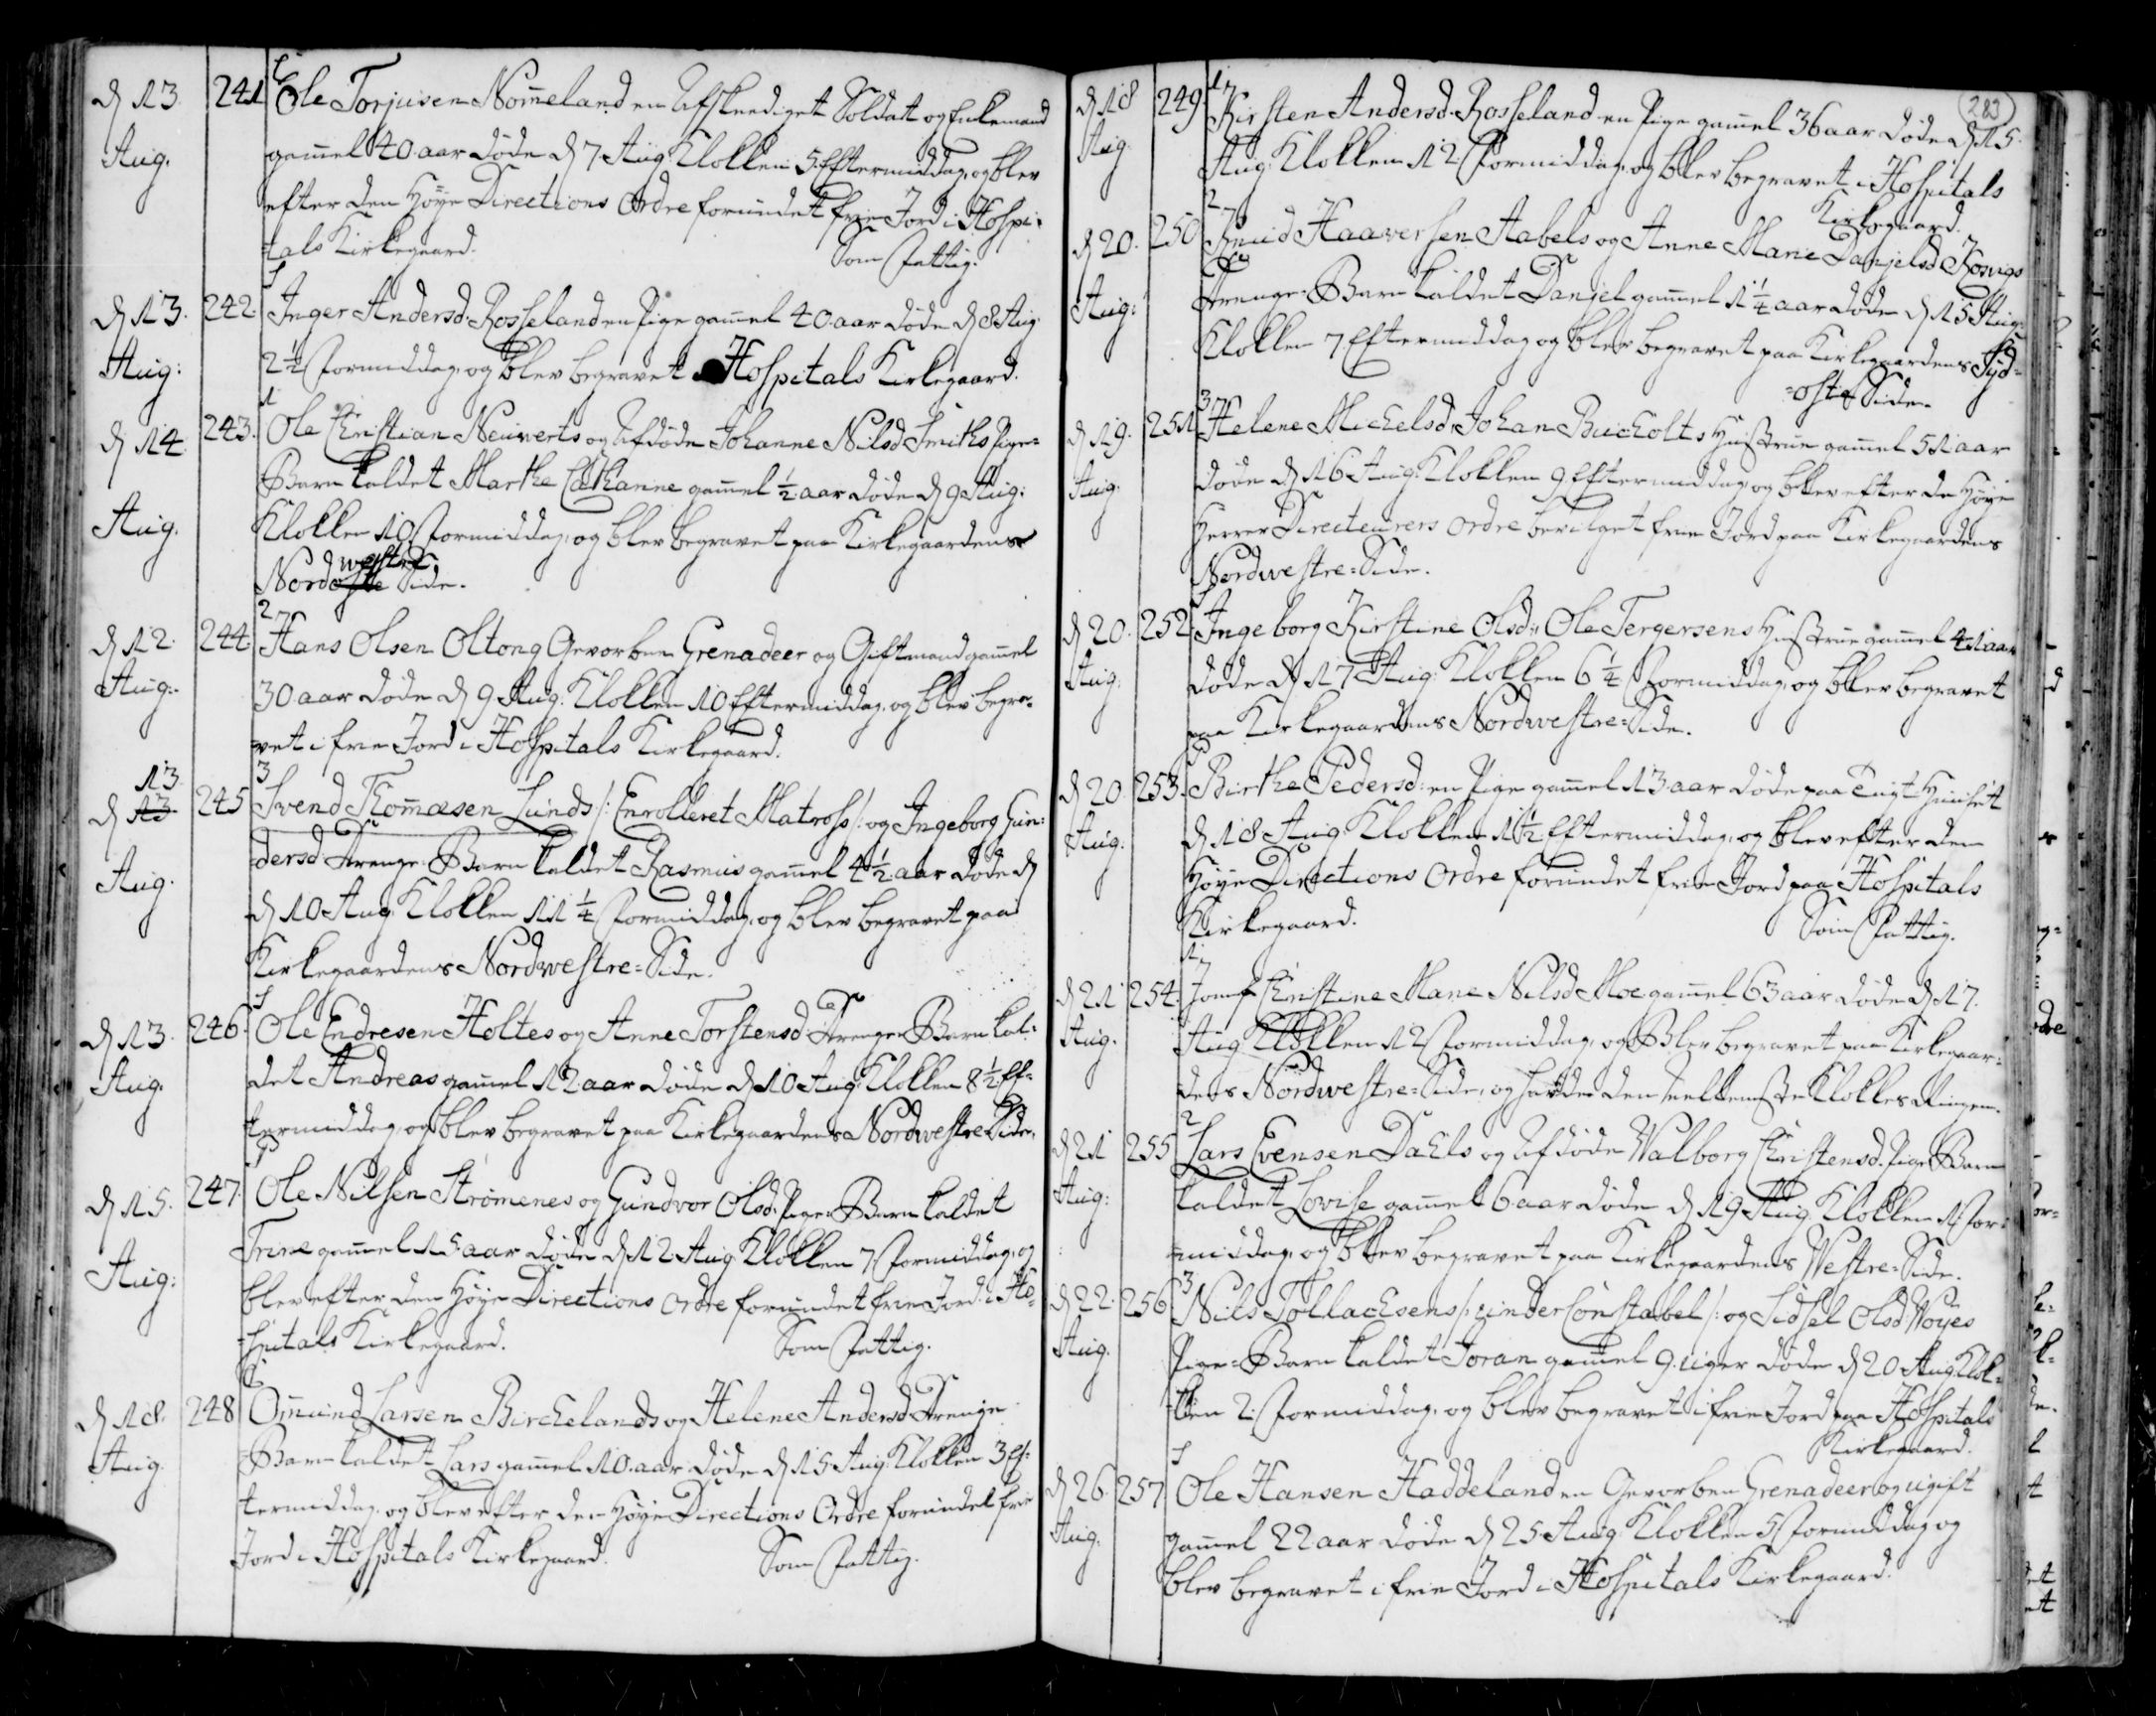 d 13. Aug. 241. Ole Torjusen Nom̄eland en Afskeediget Soldat og Enkemand
gam̄el 40 aar døde d 7 Aug: Klokken 5 Eftermiddag, og blev
efter den Høye Directions Ordre forundet frie Jord i Hospi-
tals Kirkegaard. Som Fattig.
d 13. Aug: 242. Inger Andersd. Rosseland en Pige gam̄el 40 aar døde d 8 Aug.
2½ Formiddag, og blev begravet i Hospitals Kirkegaard.
1
d 14 Aug. 243. Ole Christian Neuwerts og Afdøde Johanne Nilsd Smiths Pige=
Barn kaldet Marthe Cathanne gam̄el ½ aar døde d 9 Aug:
Klokken 10 Formiddag, og blev begravet paa Kirkegaardens
westre
Nordoste Side.
2
d 12. Aug. 244. Hans Olsen Oltong Gevorben Grenadeer og Giftmand gam̄el
30 aar døde d 9 Aug. Klokken 10 Eftermiddag, og blev begra-
vet i frie Jord i Hospitals Kirkegaard.
13. 3
d 13 Aug. 245 Svend Thom̄æsen Lunds /: Enrolleret Matross :/ og Ingeborg Gun=
dersd Drenge=Barn kaldet Rasmus gam̄el 4½ aar døde d
d 10 Aug. Klokken 11¼ Formiddag, og blev begravet paa
Kirkegaardens Nordwestre=Side.
d 13. Aug. 246. Ole Endresen Holtes og Anne Torstensd Drenge Barn kal=
det Andreas gam̄el 12 aar døde d 10 Aug: Klokken 8½ Ef=
termiddag, og blev begravet paa Kirkegaardens Nordwestre Side.
d 15. Aug: 247. Ole Nilsen Strom̄enes og Gundvor Olsd. Pige=Barn kaldet
Trine gam̄el 15 aar døde d 12 Aug. Klokken 7 Formiddag, og
blev efter den Høye Directions Ordre forundet frie Jord i Ho=
spitals Kirkegaard. Som Fattig.
d 18. Aug. 248 Om̄und Larsen Birchelands og Helene Andersd Drenge
Barn kaldet Lars gam̄el 10 aar døde d 15 Aug. Klokken 3 Ef=
termiddag, og blev efter den Høye Directions Ordre forundet frie
Jord i Hospitals Kirkegaard. Som Fattig.
283
1
d 18 Aug. 249. Kirsten Andersd. Rosseland en Pige gam̄el 36 aar døde d 15.
Aug. Klokken 12 Formiddag, og blev begravet i Hospitals
Kirkegaard.
2
d 20. Aug: 250 Knud Haaversen Aabels og Anne Marie Danjelsd
Drenge=Barn kaldet Danjel gam̄el 1¼ aar døde d 15 Aug:
Klokken 7 Eftermiddag og blev begravet paa Kirkegaardens Syd=
=oste Side.
3
d 19. Aug. 251 Helene Michelsd. Johan Bucholts Hustrue gam̄el 51 aar
døde d 16 Aug. Klokken 9 Eftermiddag, og blev efter de Høye
Herrer Directeurers Ordre bevilget frie Jord paa Kirkegaardens
Nordwestre=Side.
d 20. Aug. 252 Ingeborg Kirstine Olsd: Ole Tergersens Hustrue gam̄el 41 aar
døde d 17 Aug. Klokken 6¼ Formiddag, og blev begravet
paa Kirkegaardens Nordwestre=Side.
d 20. Aug. 253. Birthe Pedersd: en Pige gam̄el 13 aar døde paa Tugt Huuset
d 18 Aug. Klokken 1½ Eftermiddag, og blev efter den
Høye Directions Ordre forundet frie Jord paa Hospitals
Kirkegaard. Som Fattig.
1
d 21 Aug. 254. Jomf Christine Marie Nilsd Moe gam̄el 63 aar døde d 17.
Aug. Klokken 12 Formiddag, og blev begravet paa Kirkegaar=
dens Nordwestre=Side, og hafde den Klokkes Ringen.
2
d 21 Aug: 255 Lars Evensen Dahls og Afdøde Walborg Christensd. Pige Barn
kaldet Lovise gam̄el 6 aar døde d 19 Aug Klokken 1 For=
middag, og blev begravet paa Kirkegaardens Westre=Side.
3
d 22. Aug. 256 Nils Tollachsens /: under Constabel :/ og Sidsel Olsd Woyes
Pige=Barn kaldet Joran gam̄el 9 uger døde d 20 Aug Klok=
ken 2. Formiddag, og blev begravet i frie Jord paa Hospitals
Kirkegaard.
d 26. Aug. 257 Ole Hansen Haddeland en Gevorben Grenadeer og ugift
gam̄el 22 aar døde d 25 Aug. Klokken 5 Formiddag og
blev begravet i frie Jord i Hospitals Kirkegaard.